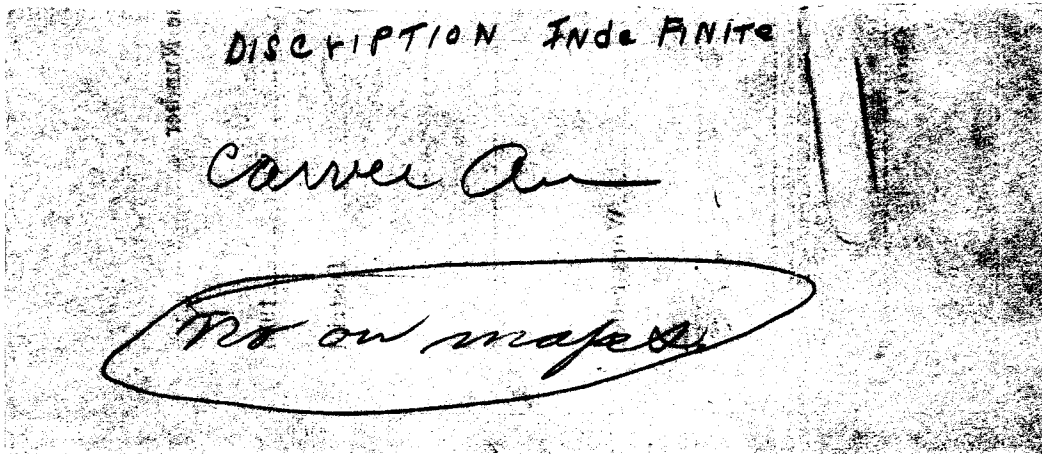 DISCrIPTION INdeFINITe
Carver
No on maps.